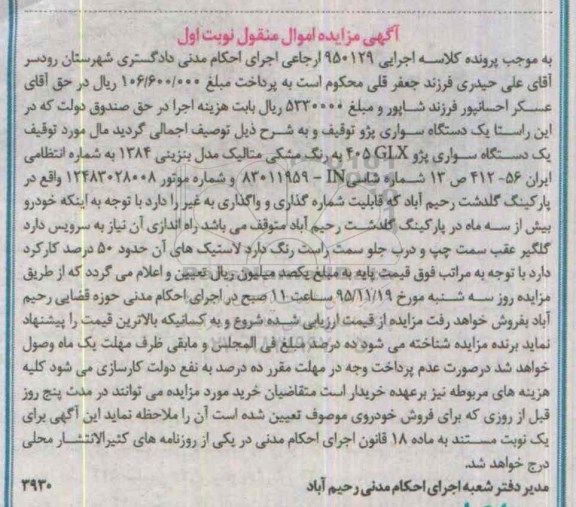 آگهی مزایده اموال منقول نوبت اول
به موجب پرونده کلاسه اجرایی ۹۵۰۱۲۹ ارجاعی اجرای احکام مدنی دادگستری شهرستان رودسر
آقای علی حیدری فرزند جعفر قلی محکوم است به پرداخت مبلغ ۱۰۶/۶۰۰/۰۰۰ ریال در حق آقای
عسکر احسانپور فرزند شاپور و مبلغ ۵۳۳۰۰۰۰ ریال بابت هزینه اجرا در حق صندوق دولت که در
این راستا یک دستگاه سواری پژو توقیف و به شرح ذیل توصیف اجمالی گردید مال مورد توقیف
یک دستگاه سواری پژو ۴۰۵ GLX به رنگ مشکی متالیک مدل بنزینی ۱۳۸۴ به شماره انتظامی
ایران ۵۶- ۴۱۲ ص ۱۳ شماره شاسی IN - ۸۳۰۱۱۹۵۹ و شماره موتور ۱۲۴۸۳۰۲۸۰۰۸ واقع در
پارکینگ گلدشت رحیم آباد که قابلیت شماره گذاری و واگذاری به غیر را دارد با توجه به اینکه خودرو
بیش از سه ماه در پارکینگ گلدشت رحیم آباد متوقف می باشد راه اندازی آن نیاز به سرویس دارد
گلگیر عقب سمت چپ و درب جلو سمت راست رنگ دارد لاستیک های آن حدود ۵۰ درصد کارکرد
دارد با توجه به مراتب فوق قیمت پایه به مبلغ یکصد میلیون ریال تعیین و اعلام می گردد که از طریق
مزایده روز سه شنبه مورخ ۹۵/۱۱/۱۹ ساعت ۱۱ صبح در اجرای احکام مدنی حوزه قضایی رحیم
آباد بفروش خواهد رفت مزایده از قیمت ارزیابی شده شروع و به کسانیکه بالاترین قیمت را پیشنهاد
نماید برنده مزایده شناخته می شود ده درصد مبلغ فی المجلس و مابقی ظرف مهلت یک ماه وصول
خواهد شد درصورت عدم پرداخت وجه در مهلت مقرر ده درصد به نفع دولت کارسازی می شود کلیه
هزینه های مربوطه نیز برعهده خریدار است متقاضیان خرید مورد مزایده می توانند در مدت پنج روز
قبل از روزی که برای فروش خودروی موصوف تعیین شده است آن را ملاحظه نماید این آگهی برای
یک نوبت مستند به ماده ۱۸ قانون اجرای احکام مدنی در یکی از روزنامه های کثیرالانتشار محلی
درج خواهد شد.
مدیر دفتر شعبه اجرای احکام مدنی رحیم آباد ۳۹۳۰